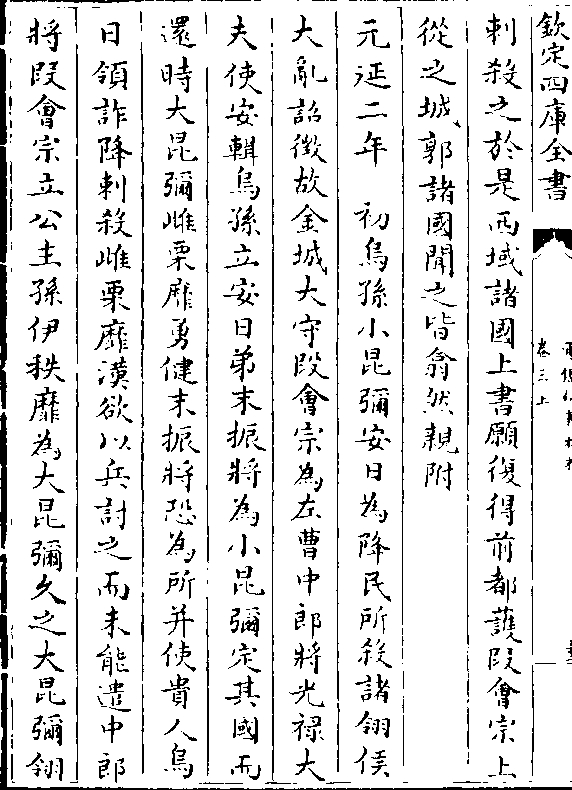 欽定四庫全書
卷三上
刺殺之於是西域諸國上書願復得前都護段㑹宗上
從之城郭諸國聞之皆翕然親附
元延二年　初烏孫小昆彌安日為降民所殺諸翎侯
大亂詔徴故金城大守段㑹宗為左曹中郎將光禄大
夫使安輯烏孫立安日弟末振將為小昆彌定其國而
還時大昆彌雌栗靡勇健末振將恐為所并使貴人烏
日領詐降刺殺雌栗靡漢欲以兵討之而未能遣中郎
將段㑹宗立公主孫伊秩靡為大昆彌久之大昆彌翎